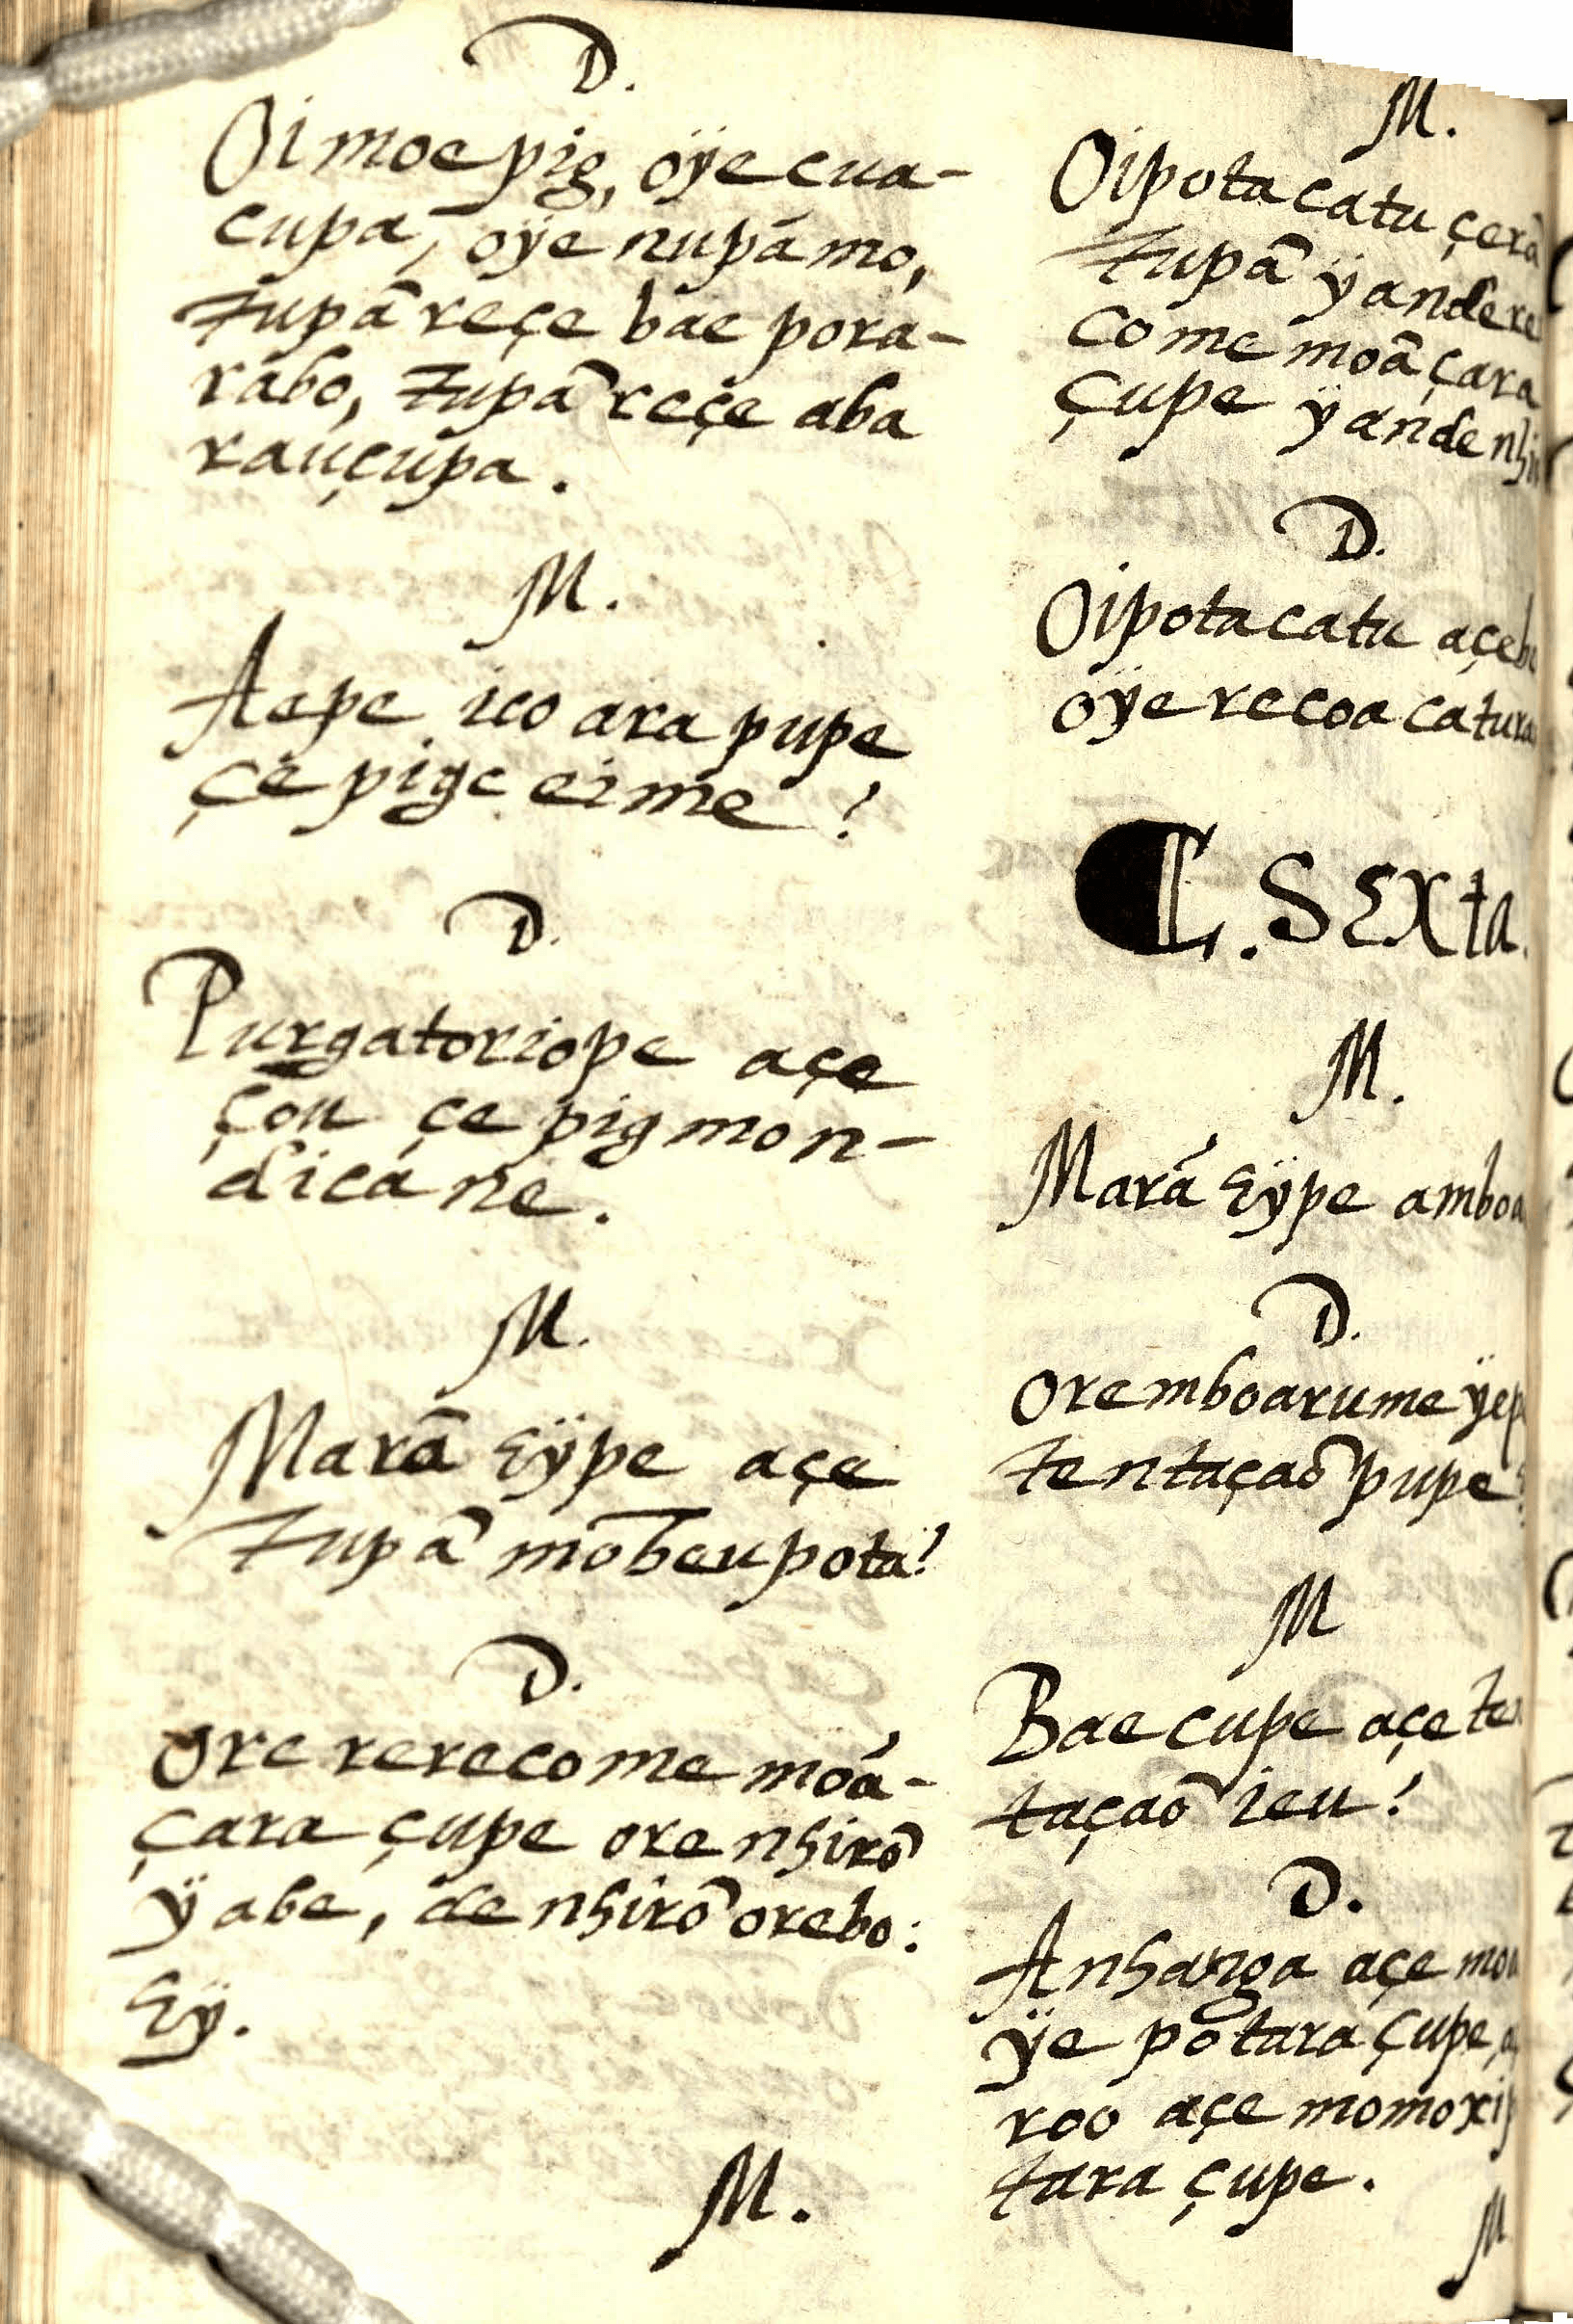 D.
Oimoepig, oÿecua-
cupa, oÿe nupámo,
tupã reçe bae pora-
rábo, tupã reçe aba
rauçupa.
M.
Aepe ico ara pupe
çe pige eime?
D.
Purgatoriope açe
çou çe pig mon-
dica ne.
M.
Marã eÿpe açe
tupã mobeu pota?
D.
Ore rerecome moá-
çara çupe ore nhirõ
ÿabe, de nhirõ orebo:
Eÿ.
M.
M.
Oipota catu çerã
tupã ÿandere
come moã çara
çupe ÿande
D.
Oipota catu
oÿe recoa
Sexta.
M.
Mará eÿpe
D.
Ore mboarume
tentaçaõ pupe
M
Bae cupe açe
taçaõ ieu?
D.
Anhanga açe
ÿe potara çupe,
roo açe
tara çupe.
M